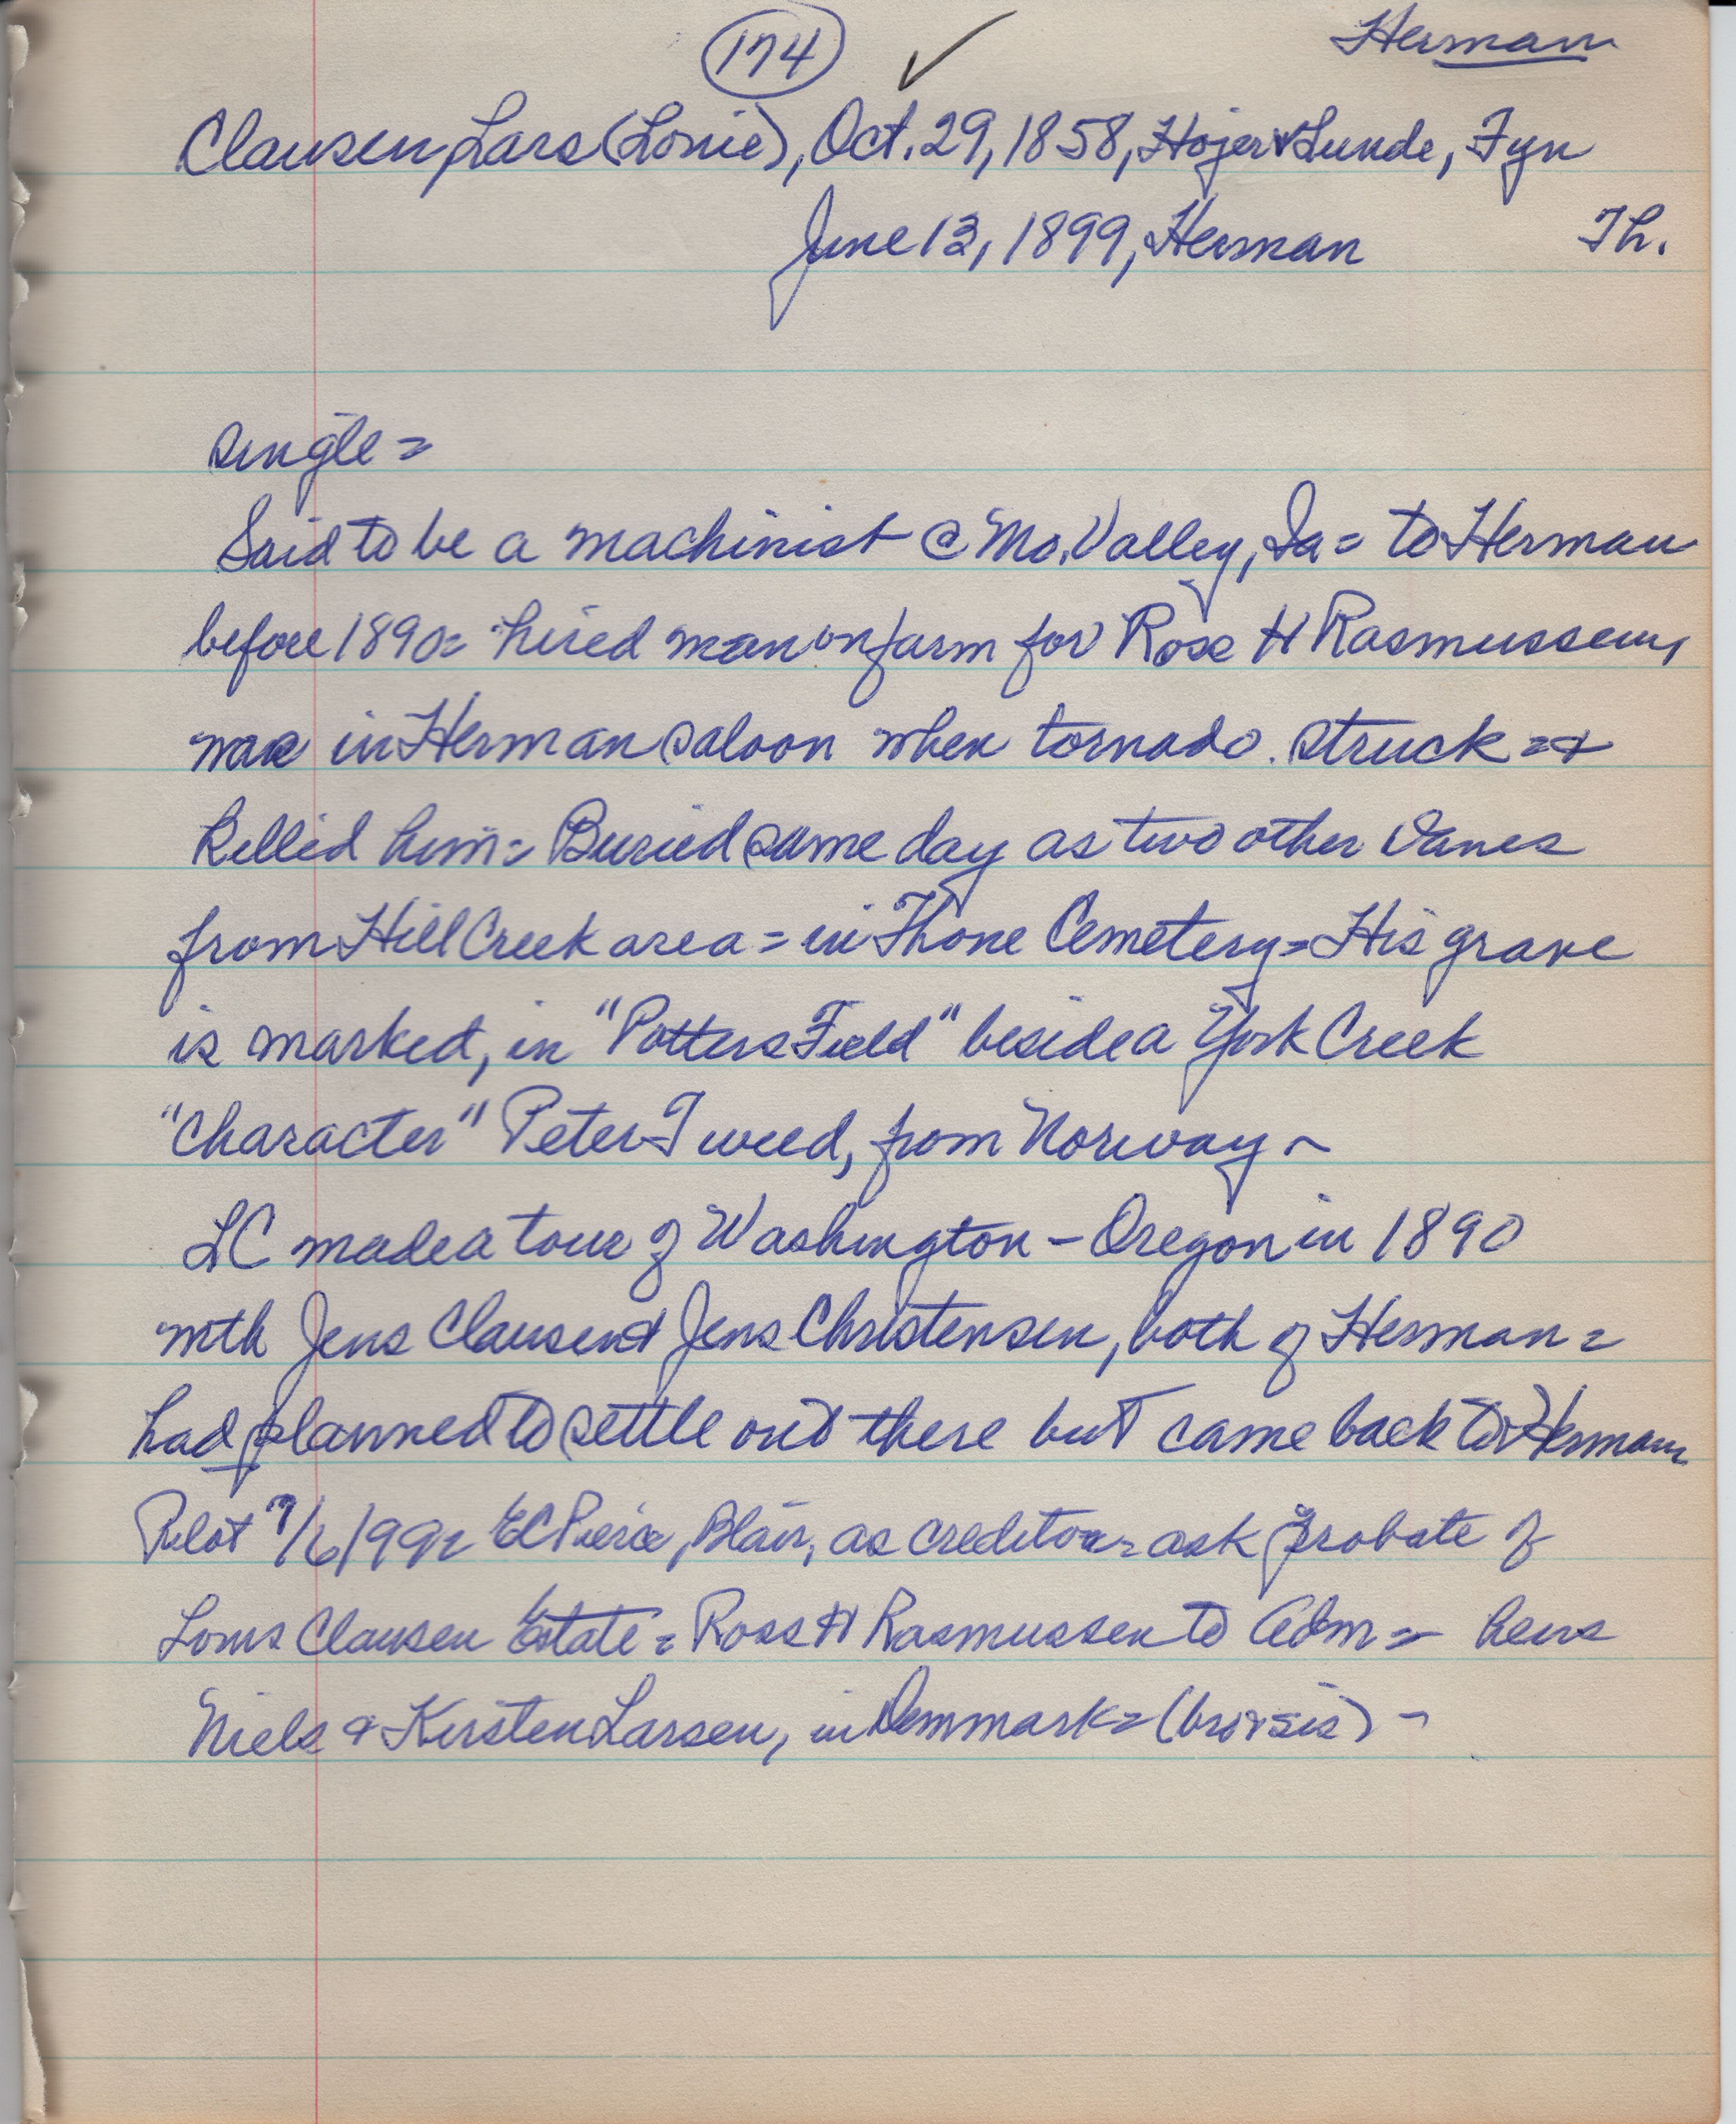 174 ✓ Herman
Clausen, Lars (Louie), Oct. 29, 1858, Hojer & Lunde, Fyn
June 13, 1899, Herman Th.
single =
Said to be a machinist @ Mo. Valley, Ia = to Herman
before 1890 = hired man on farm for Ross H Rasmussen,
was in Herman saloon when tornado struck = &
killed him = Buried same day as two other Danes
from Hill Creek area = in Thone Cemetery = His grave
is marked, in "Potters Field" beside a York Creek
"character" Peter Tweed, from Norway ~
LC made a tour of Washington - Oregon in 1890
with Jens Clausen & Jens Christensen, both of Herman =
had planned to settle out there but came back to Herman
Pilot 7/6/99 = EC Pierce, Blair, as creditor = ask probate of
Louis Clausen Estate = Ross H Rasmussen to Adm = heirs
Niels & Kirsten Larsen, in Demmark = (bro & sis) -